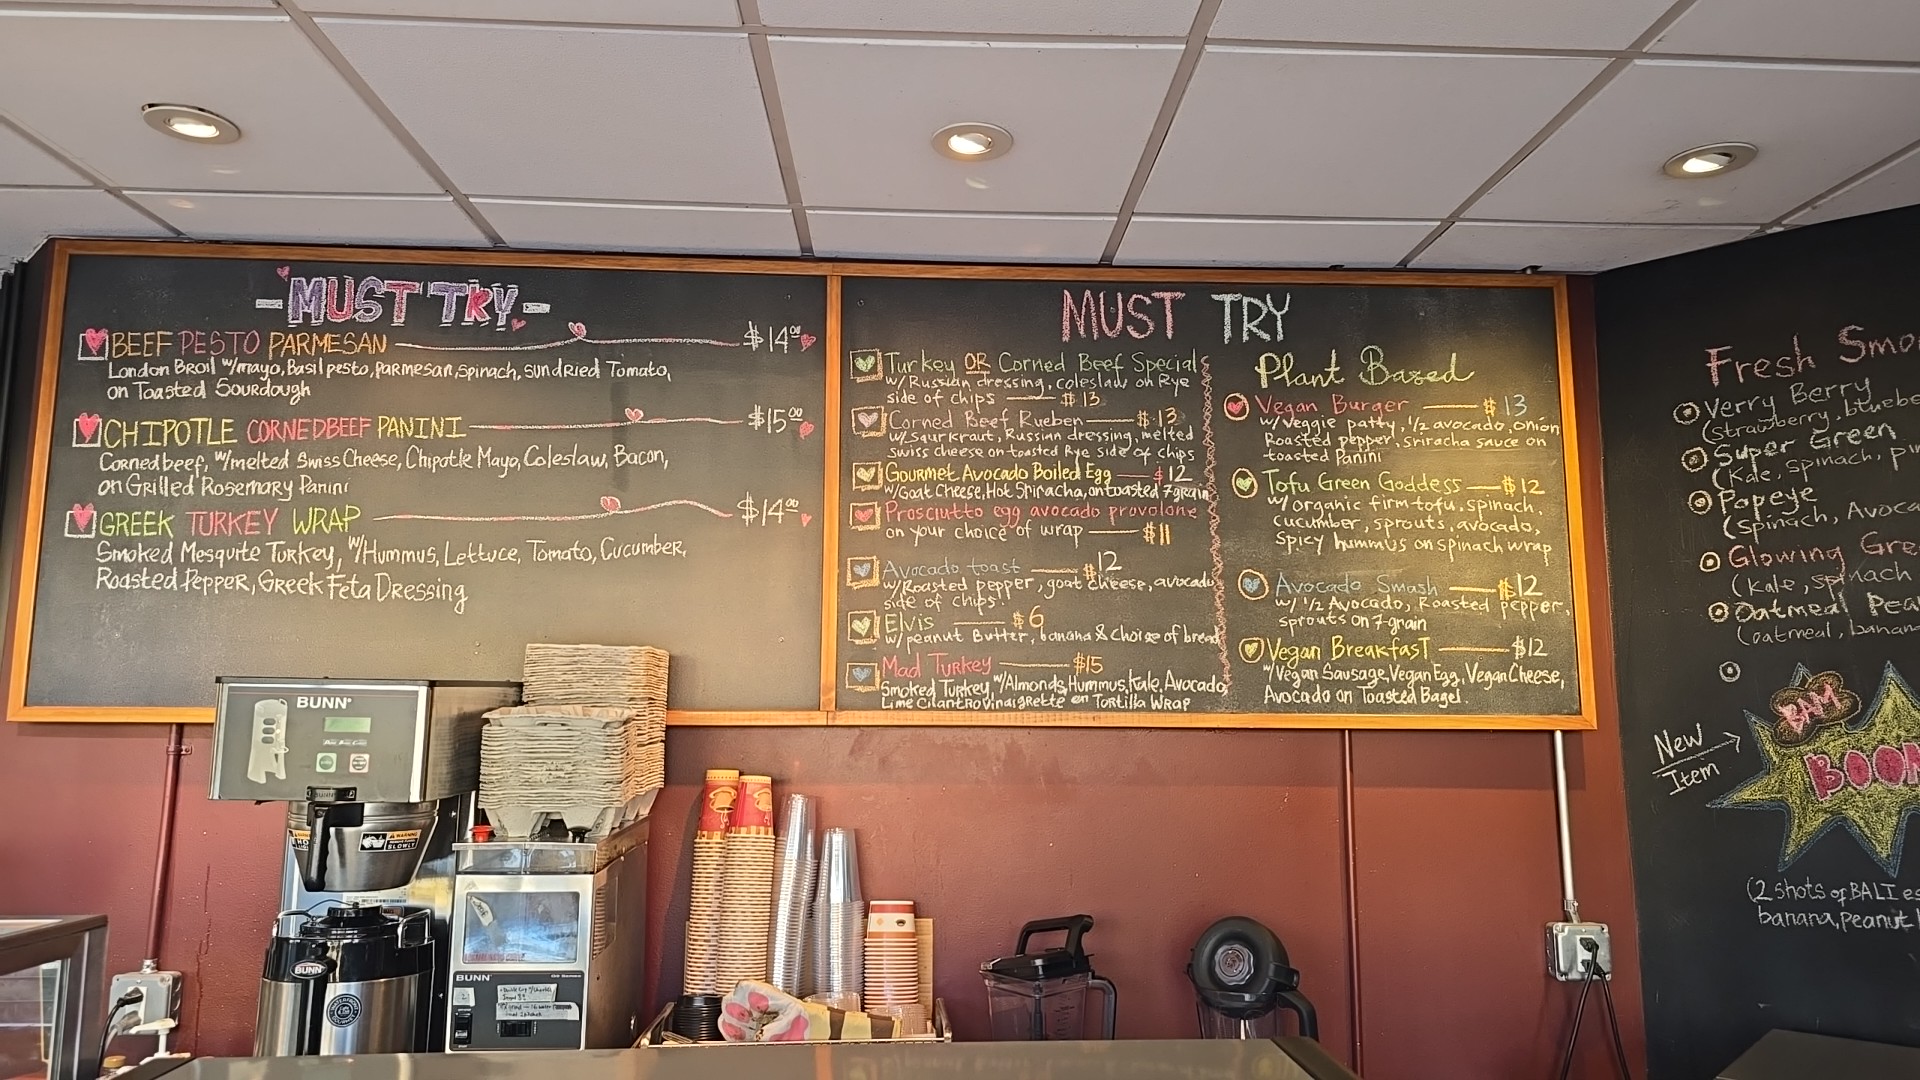 -MUST TRY-
BEEF PESTO PARMESAN $14⁰⁰
London Broil w/mayo, Basil pesto, parmesan, spinach, sundried Tomato,
on Toasted Sourdough
CHIPOTLE CORNEDBEEF PANINI $15⁰⁰
Cornedbeef, w/melted Swiss Cheese, Chipotle Mayo, Coleslaw, Bacon,
on Grilled Rosemary Panini
GREEK TURKEY WRAP $14⁰⁰
Smoked Mesquite Turkey, w/Hummus, Lettuce, Tomato, Cucumber,
Roasted Pepper, Greek Feta Dressing
MUST TRY
Turkey OR Corned Beef Special
w/Russian dressing, coleslaw on Rye
side of chips $13
Corned Beef Rueben $13
w/saurkraut, Russian dressing, melted
swiss cheese on toasted Rye side of chips
Gourmet Avocado Boiled Egg $12
w/Goat Cheese, Hot Shiracha, on toasted 7grain
Prosciutto egg avocado provolone
on your choice of wrap $11
Avocado toast $12
w/Roasted pepper, goat cheese, avocado
side of chips.
Elvis $6
w/peanut Butter, banana & choise of bread
Mad Turkey $15
Smoked Turkey, w/Almonds, Hummus, Kale, Avocado,
Lime Cilantro Vinaigrette on Tortilla Wrap
Plant Based
Vegan Burger $13
w/veggie patty, 1/2 avocado, onion
Roasted pepper, sriracha sauce on
toasted Panini
Tofu Green Goddess $12
w/organic firm tofu, spinach,
cucumber, sprouts, avocado,
spicy hummus on spinach wrap
Avocado Smash $12
w/ 1/2 Avocado, Roasted pepper,
sprouts on 7-grain
Vegan Breakfast $12
w/Vegan Sausage, Vegan Egg, Vegan Cheese,
Avocado on Toasted Bagel.
Fresh Smo
Verry Berry
(strawberry, bluebe
Super Green
(Kale, spinach, pin
Popeye
(spinach, Avoca
Glowing Gre
(Kale, spinach
Oatmeal Pea
(oatmeal, banana
New
Item
BAM
BOOM
(2 shots of BALI es
banana, peanut
BUNN
BUNN
WARNING
SLOWLY
BUNN
BUNN